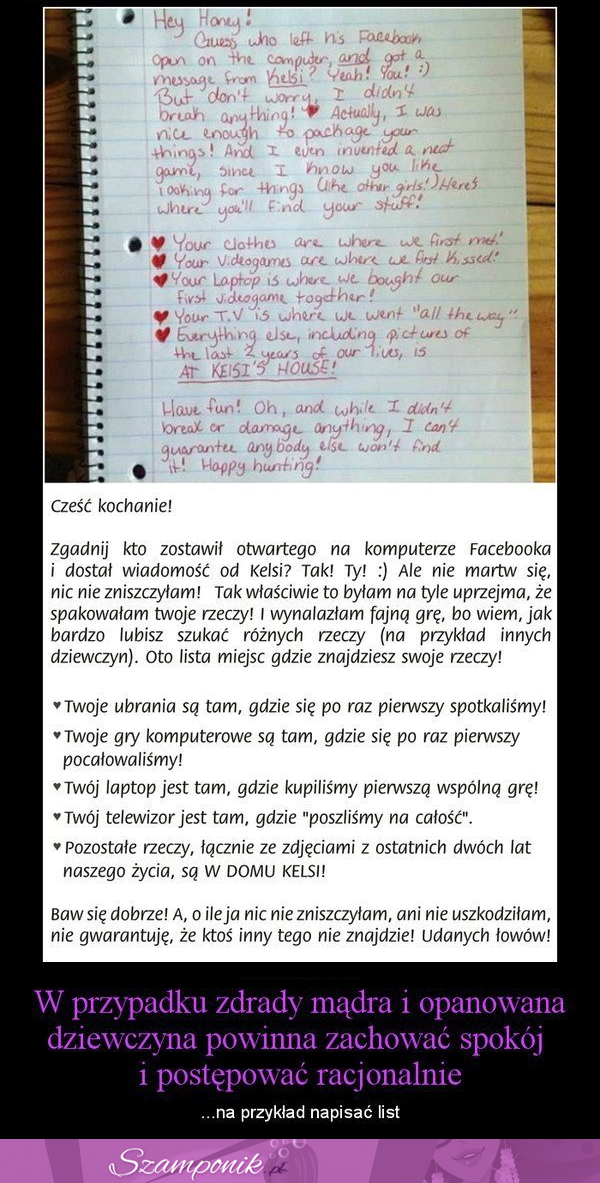 Hey Honey!
Guess who left his Facebook
open on the computer, and got a
message from Kelsi? Yeah! You! :)
But don't worry, I didn't
break anything! ♥ Actually, I was
nice enough to package your
things! And I even invented a neat
game, since I know you like
looking for things (like other girls!) Here's
where you'll find your stuff!
♥ Your clothes are where we first met!
♥ Your Videogames are where we first kissed!
♥ Your Laptop is where we bought our
first videogame together!
♥ Your T.V is where we went "all the way"
♥ Everything else, including pictures of
the last 2 years of our lives, is
AT KElSI'S HOUSE!
Have fun! Oh, and while I didn't
break or damage anything, I can't
guarantee anybody else won't find
it! Happy hunting!
Cześć kochanie!
Zgadnij kto zostawił otwartego na komputerze Facebooka
i dostał wiadomość od Kelsi? Tak! Ty! :) Ale nie martw się,
nic nie zniszczyłam! Tak właściwie to byłam na tyle uprzejma, że
spakowałam twoje rzeczy! I wynalazłam fajną grę, bo wiem, jak
bardzo lubisz szukać różnych rzeczy (na przykład innych
dziewczyn). Oto lista miejsc gdzie znajdziesz swoje rzeczy!
♥ Twoje ubrania są tam, gdzie się po raz pierwszy spotkaliśmy!
♥ Twoje gry komputerowe są tam, gdzie się po raz pierwszy
pocałowaliśmy!
♥ Twój laptop jest tam, gdzie kupiliśmy pierwszą wspólną grę!
♥ Twój telewizor jest tam, gdzie "poszliśmy na całość".
♥ Pozostałe rzeczy, łącznie ze zdjęciami z ostatnich dwóch lat
naszego życia, są W DOMU KELSI!
Baw się dobrze! A, o ile ja nic nie zniszczyłam, ani nie uszkodziłam,
nie gwarantuję, że ktoś inny tego nie znajdzie! Udanych łowów!
W przypadku zdrady mądra i opanowana
dziewczyna powinna zachować spokój
i postępować racjonalnie
...na przykład napisać list
Szamponik.pl